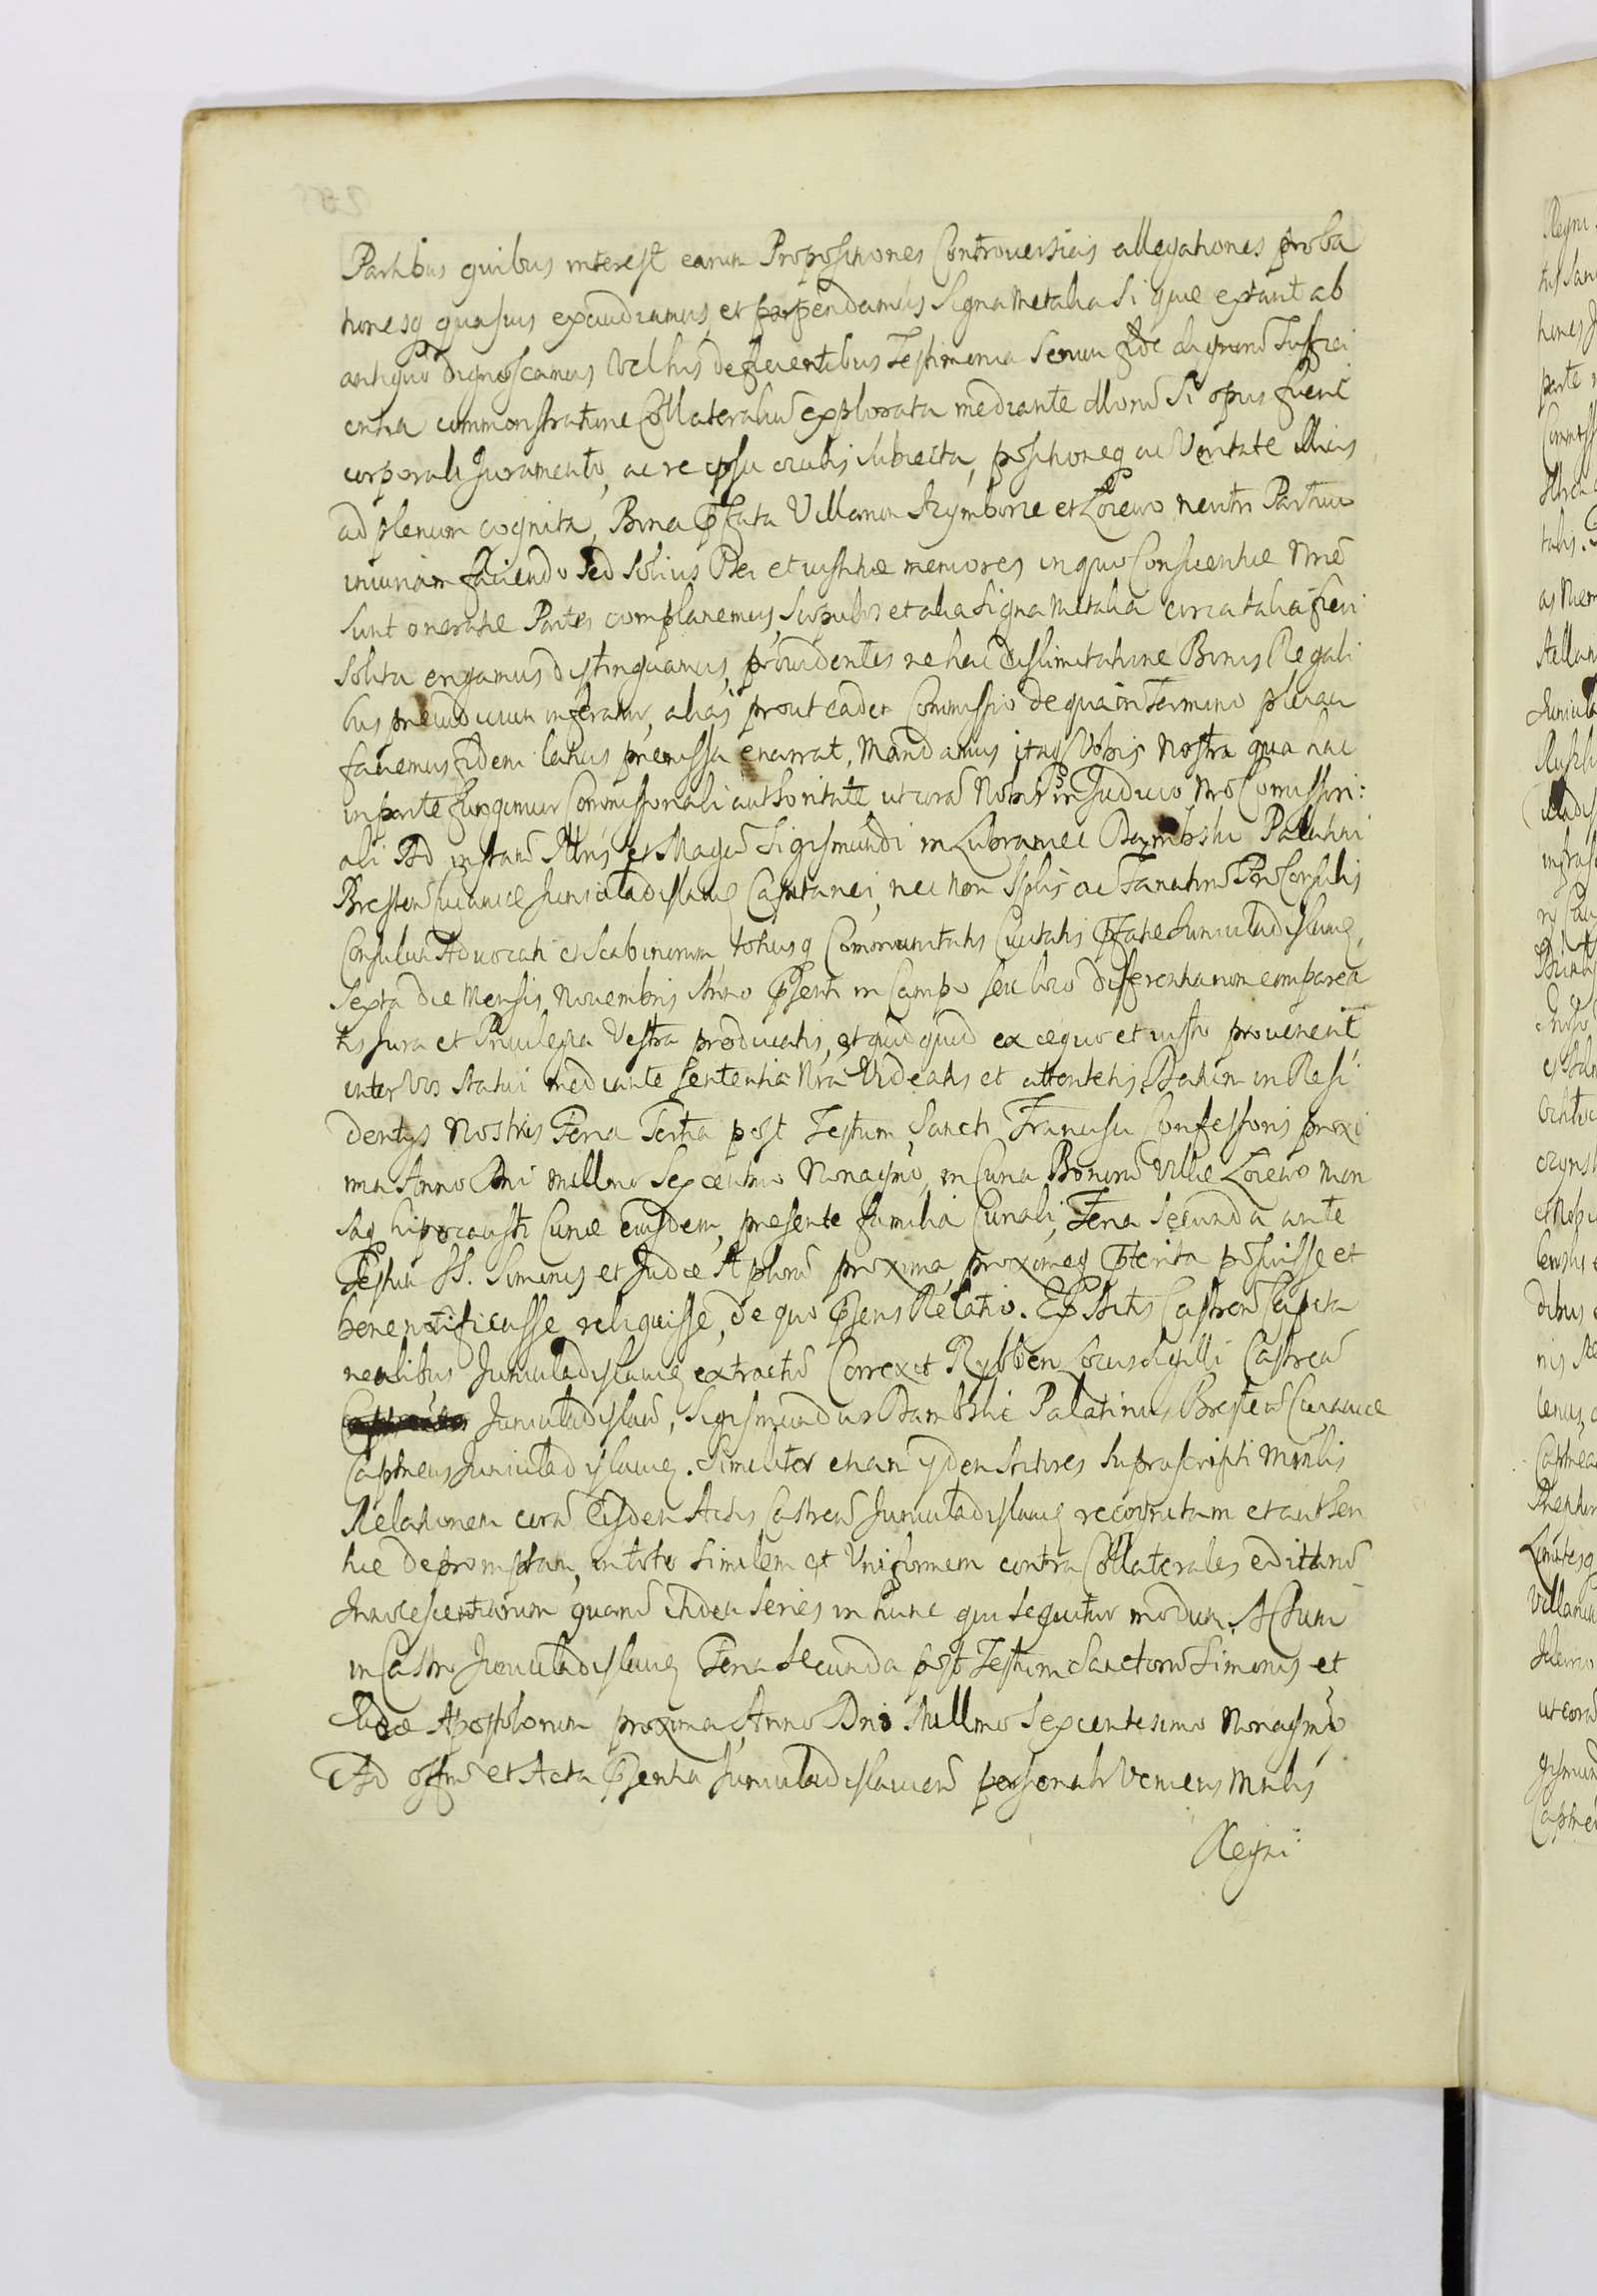 Partibus quibus interest earum Propositiones Controversias allegationes proba
tionesq quasuis exaudiamus, et perpendamus Signa Metalia si quae extant ab
antiquo dignoscamus Vel his deficientibus Testimonia Senum fide dignorū Suffici
entia commonstratione Collateraliū explorata mediante illorū Si opus fuerit
corporali Juramento, ac re ipsa oculis subiecta, positioneq ac Veritate illius
ad plenum cognita, Bona Pfata Villarum Szymborze et Łoiewo neutri Partium
iniuriam faciendo Sed Solius Dei et iustitiae memores in quo Conscientiae Nrae
Sunt oneratae Partes complanemus, Scopulos et alia Signa Metalia circa talia fieri
Solita erigamus distinguamus, providentes ne hac dislimitatione Bonis Regali
bus preiudicium inferatur, alias prout eadem Commissio de qua in Termino plenam
faciemus fidem latius premissa enarrat, Mandamus itaq Vobis Nostra qua hac
in parte fungimur Commissoriali authoritate ut corā Nobis et in Judicio Nro Comissori:
ali Ad instanā Illris et Magci Sigismundi in Lubraniec Dąmbski Palatini
Bresten Cuiaviae Juniuladislavieñ Capitanei, nec non Spblis ac Famatorū Pro Consulis
Consulum Advocati et Scabinorum totiusq Communitatis Civitatis Pfatae Juniuladislavieñ,
Sexta die Mensis Novembris Anno Psenti in Campo seu loco differentiarum comparea
tis Jura et Privilegia Vestra producatis, et quid quid ex aequo et iusto provenerit
inter Vos statui mediante Sententia Nra Videatis et attentetis. Datum in Resi
dentys Nostris Feria Tertia post Festum Sancti Francisci Confessoris proxi
ma Anno Dni millmo Sexcentmo Nonagmo, in Curia Bonorū Villae Łoiewo men
saq hipocausti Curiae eiusdem, presente familia Curiali, Feria Secunda ante
Festum SS. Simonis et Judae Aplorū proxima, proximeq Pterita posuisse et
bene notificasse reliquisse, de quo Psens Relatio. Ex Actis Castren Capita
nealibus Juniuladislavieñ extractū Correxit Rybben Locus Sigilli Castren
Juniuladislavieñ, Sigismundus Dąmbski Palatinus Bresten Cuiaviae
Captneus Juniuladislavieñ. Similiter etiam ydem Actores suprascripti Mrilis
Relationem corā Eisdem Actis Castren Juniuladislavieñ recognitam et authen
tice depromptam, in toto Similem et Uniformem contra Collaterales editarū
Innotescentiarum quarū itidem Series in hunc qui Sequitur modum. Actum
in Castro Juniuladislavieñ Feria Secunda post Festum Sanctorū Simonis et
Judae Apostolorum proxima, Anno Dni Millmo Sexcentesimo Nonagmo
Ad offm et Acta Psentia Juniuladislavien personalr Veniens Mrilis
Regni: